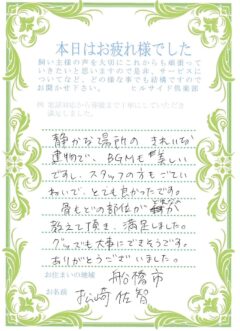 本日はお疲れ様でした
飼い主様の声を大切にこれからも頑張って
いきたいと思いますので是非、サービスに
ついてなど、どの様な事でも結構ですので
お聞かせ下さい。 ヒルサイド倶楽部
例 電話対応から葬儀まで丁寧にしていただき
満足しました。
静かな場所の きれいな
建物で、BGMも美しい
ですし、スタッフの方もごてい
ねいで、とても良かったです。
骨もどの部位か
教えて頂き、満足しました。
グッズも大事にできそうです。
ありがとうございました。
お住まいの地域 船橋市
お名前 松崎佐智